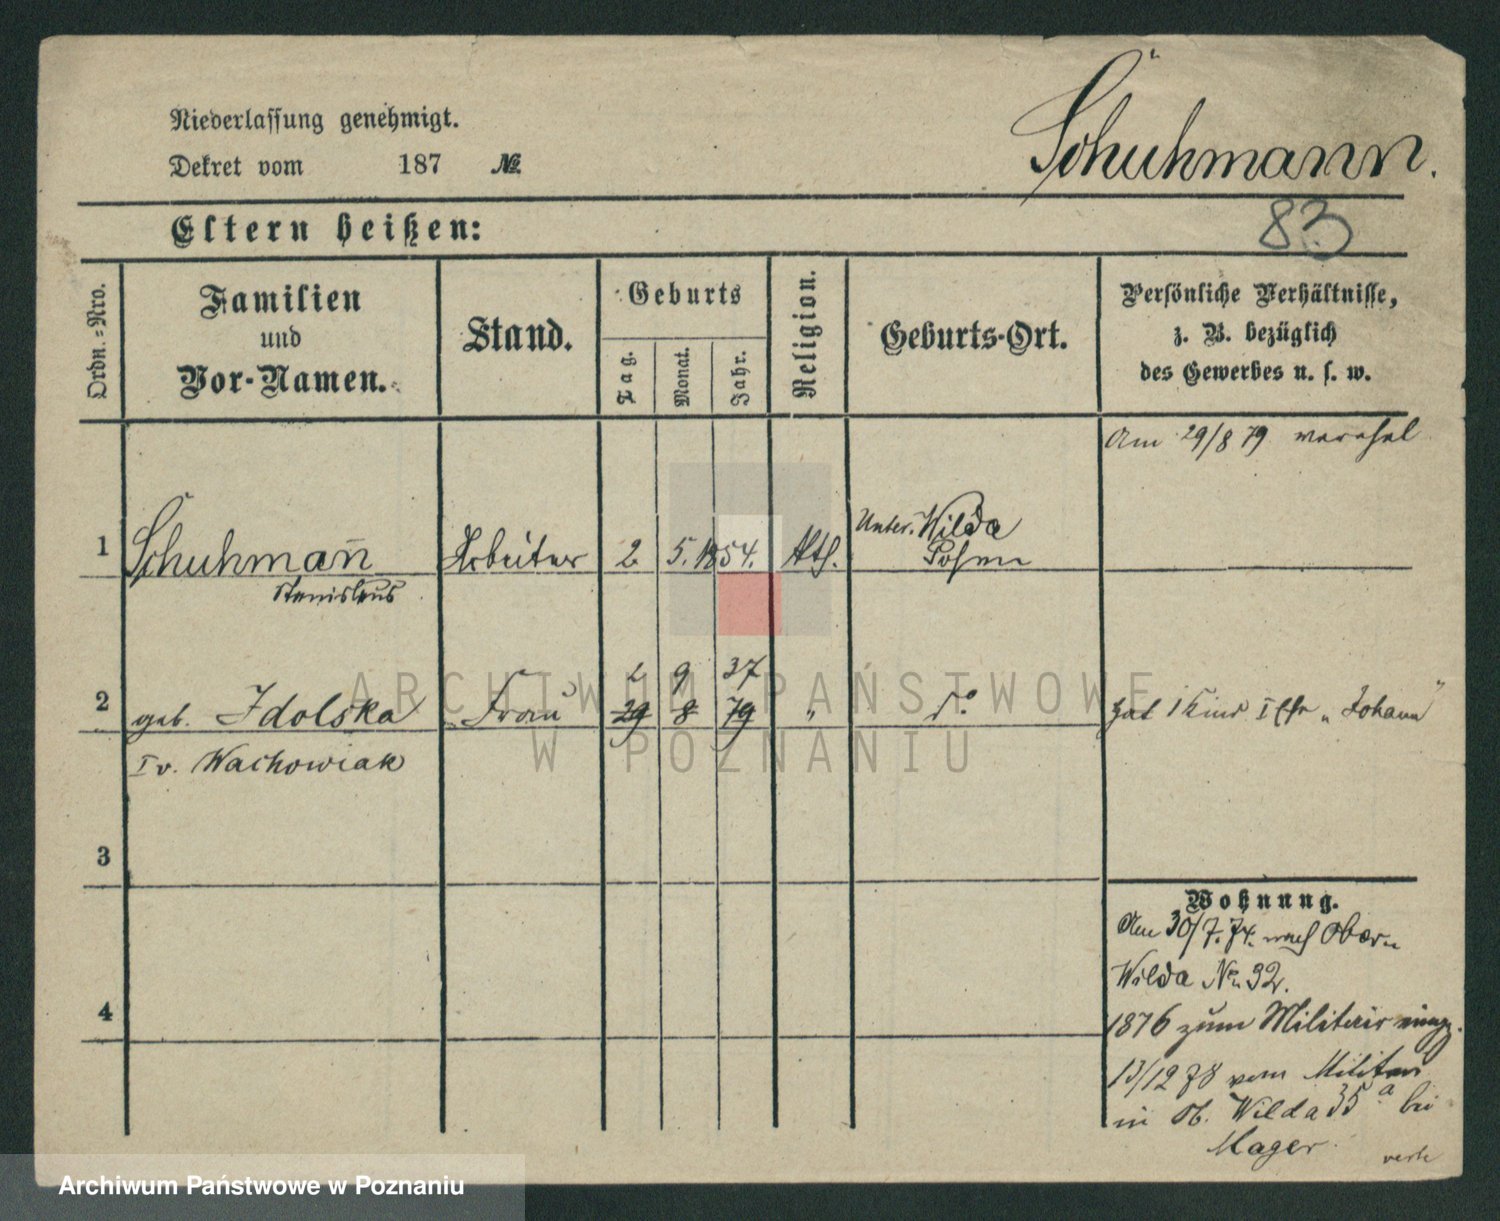 Niederlassung genehmigt.
Dekret vom 187 №
Schuhmann.
83
Eltern heißen:
Ordn.-Nro.
Familien
und
Vor-Namen.
Stand.
Geburts
Tag.
Monat.
Jahr.
Religion.
Geburts-Ort.
Persönliche Verhältnisse,
z. B. bezüglich
des Gewerbes u. s. w.
Am 29/8 79 verehel
1 Schuhmañ Arbeiter 2 5. 1854. Kth. Unter. Wilda
Stanislaus Posen
2 9 37
2 geb. Idolska Frau 29 8 79 " do hat 1 Kind "Johann"
I v. Wachowiak
3
4
Wohnung.
Am 30/7. 74. nach Obern
Wilda No. 32.
1876 zum Militair eingz.
13/12 78 vom Militair
in Ob. Wilda 35a bei
Mager.
ARCHIWUM PAŃSTWOWE
W POZNANIU
Archiwum Państwowe w Poznaniu